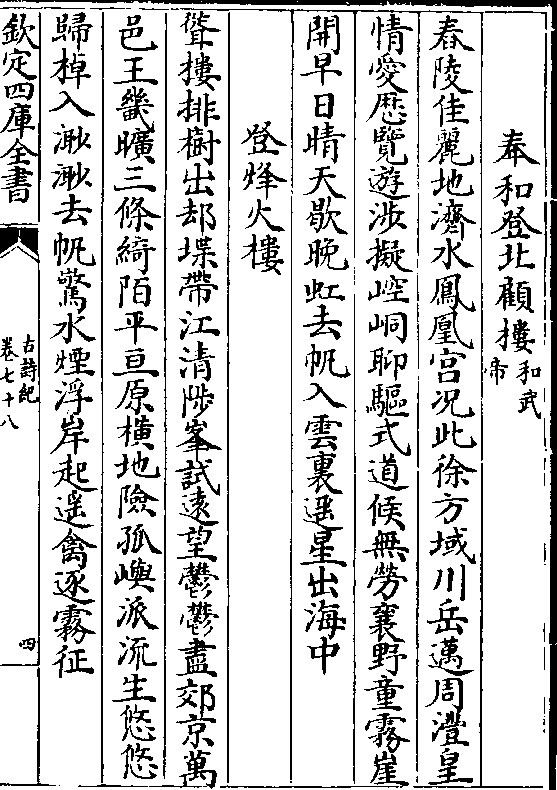 奉和登北顧樓和武帝
舂陵佳麗地濟水鳳凰宫况此徐方域川岳邁周灃皇
情愛歴覽遊渉擬崆峒聊驅式道候無勞襄野童霧崖
開早日晴天歇晚虹去帆入雲裏遥星出海中
登烽火樓
聳樓排樹出却堞帶江清陟峯試逺望鬱鬱盡郊京萬
邑王畿曠三條綺陌平亘原横地險孤嶼派流生悠悠
歸棹入渺渺去帆驚水煙浮岸起遥禽逐霧征
欽定四庫全書
古詩紀
卷七十八
四